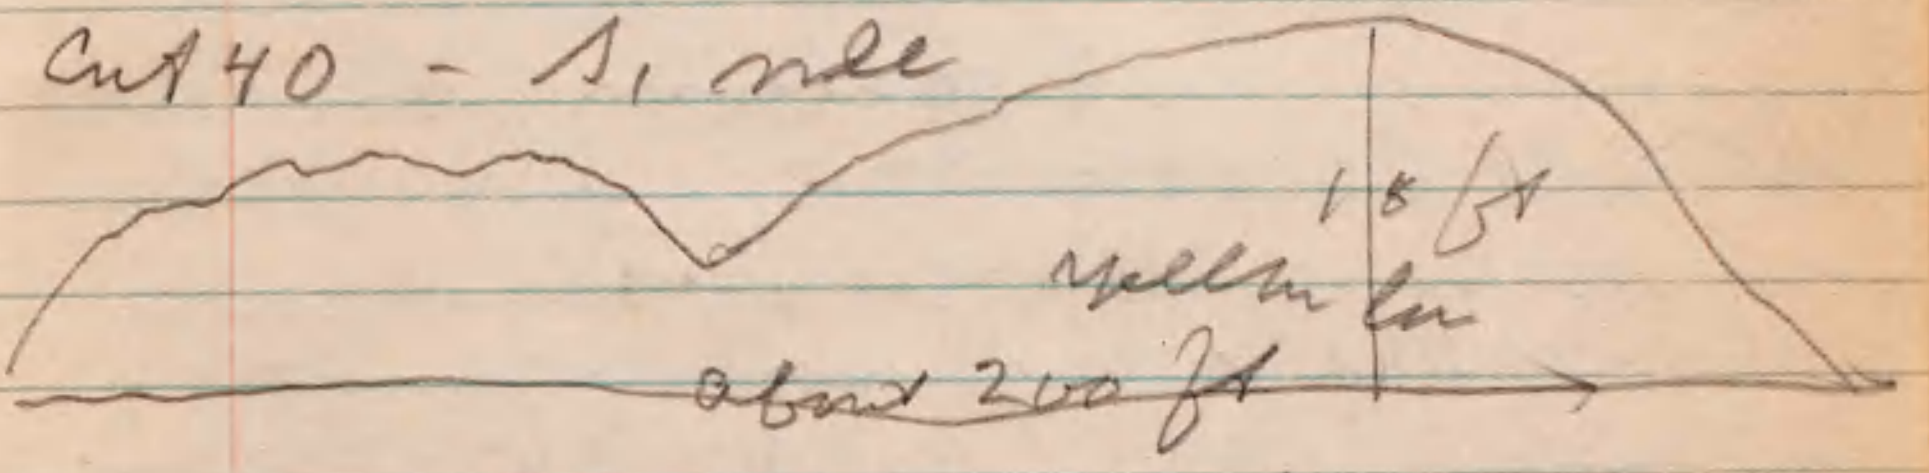 Cut 40 - S, side
18 ft
yellow
about 200 ft